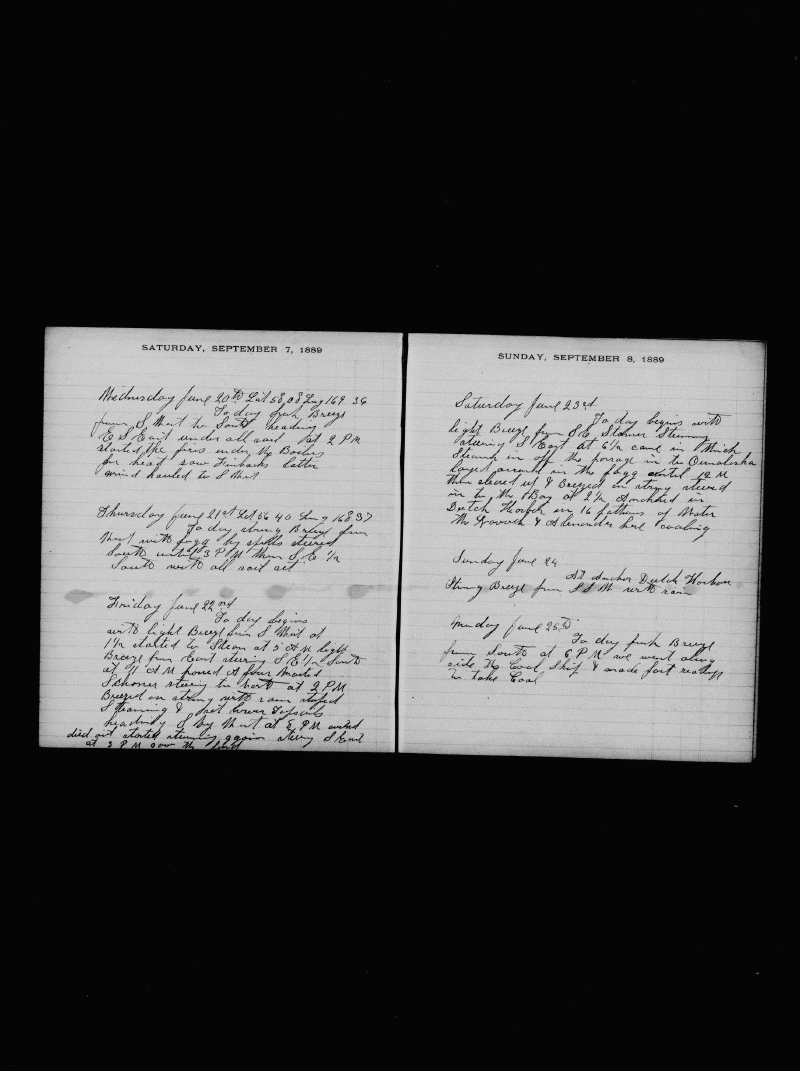 SATURDAY, SEPTEMBER 7, 1889
Wednesday June 20th Lat 58,08 Lng 169 36
To day fresh Breeze
from S West to South heading
E S East under all sail at 2 P M
started the fires under the Boilers
for head saw Finbacks latter
wind hauled to S West
Thursday June 21st Lat 56 40 Lng 168 37
To day strong Breeze from
West with fogg by spells steered
South until 3 P M then S E 1/2
South with all sail set
Friday June 22nd
To day begins
with light Breeze from S West at
1 1/2 started to Steam at 5 A M light
Breeze from East steering S E 1/2 South
at 11 A M passed A four Masted
Schooner steering to North at 3 P M
Breezed on strong with rain stoped
Steaming & set lower Topsails
heading S by West at 8 P M wind
died out started steaming again stering S East
at 3 P M saw the land
SUNDAY, SEPTEMBER 8, 1889
Saturday June 23rd
To day begins with
light Breeze from S E Steamer Steaming
steering S East at 6 1/2 came in thick
Steamed in off the passage in to Ounalaska
layed around in the fogg until 12 M
then cleared up & Breezed on strong steered
in to the Bay at 2 1/2 Anchored in
Dutch Harbor in 16 fathoms of Water
the & Alexander here coaling
Sunday June 24
At Anchor Dutch Harbour
Strong Breeze from S S W with rain
Munday June 25th
To day fresh Breeze
from South at 6 P M we went along
side the Coal Ship & made fast ready
to take Coal